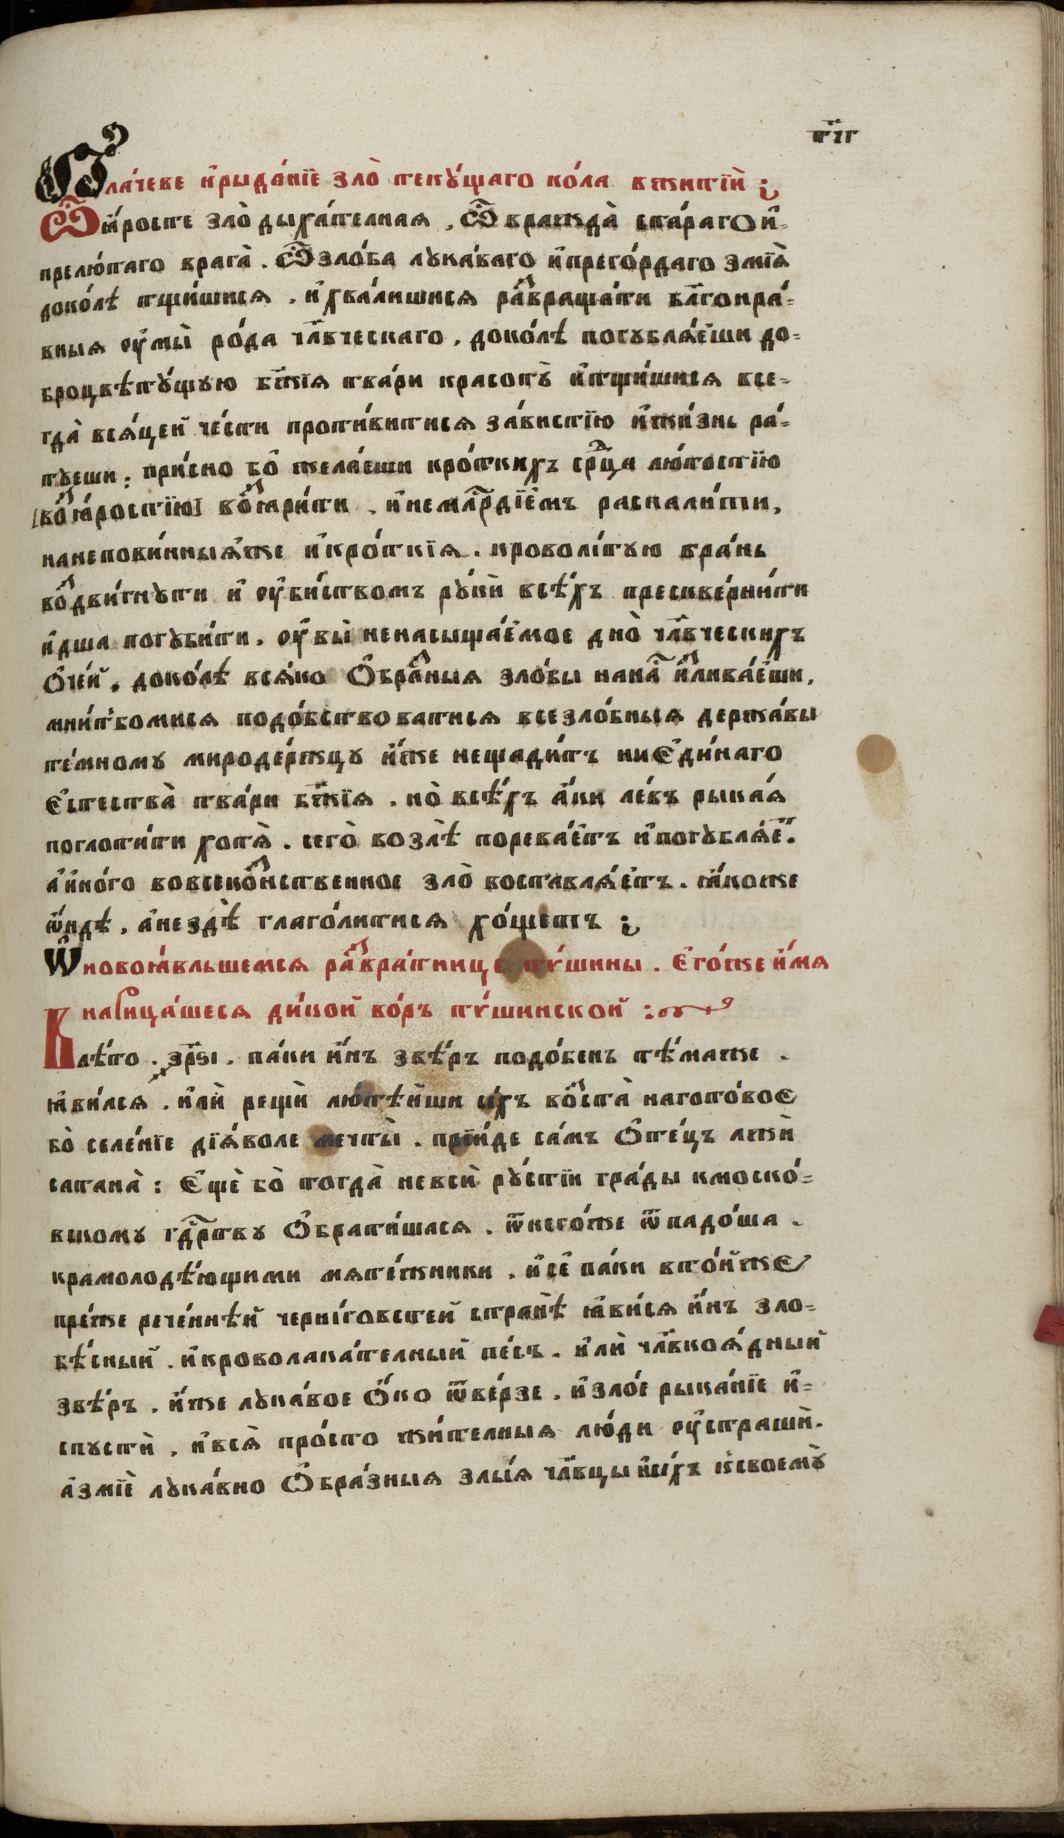 Ѡ пла́чеве и҆рыда́нїе зло̀ теку́щаго ко́ла вжитїи̑ :
Ѽ ꙗ҆́росте зло̀ дыха́телная , Ѽ вражда̀ ста́раго и҆-
прелю́таго врага̀ . Ѽ зло́ба лука́ваго и҆прего́рдаго змїѧ̀
доко́лѣ тщи́шисѧ . и҆хва́лишисѧ раⷥвраща́ти бл҃гонра́-
вныѧ оу҆мы̀ ро́да чл҃вческаго , доко́лѣ погублѧ́еши до-
броцвѣту́щую бж҃їѧ твари красоту̀ и҆тщи́шисѧ все-
гда̀ всѧ́цей че́сти проти́витисѧ за́вистїю и҆жи́знь ра́-
туеши : при́сно бо̀ жела́еши кро́ткихъ срⷣца лю́тостїю
[воⷥꙗ҆́ростїю] воⷥꙗри́ти . и҆немлⷭ҇рдїемъ раскали́ти ,
наненови́нныѧже и҆кро́ткїѧ . кроволі́тую бра́нь
воⷥдви́гнути и҆ оу҆би́йствомъ ру́ки̑ всѣ́хъ прескве́рнити
и҆дша погуби́ти . оу҆вы̀ ненасыща́емое дно̀ чл҃вческихъ
Ѻ҆че́й , доко́лѣ всѧ́ко Ѻ҆браⷥныѧ зло́бы нанаⷭ҇ и҆ⷥлива́еши ,
мни́твомисѧ подо́бствоватисѧ всезло́бныѧ держа́вы
те́мному миродержцу и҆́же нещади́тъ ниЕ҆ди́наго
Е҆стества̀ тва́ри бж҃їѧ . но̀ всѣ́хъ а҆́ки ле́въ рыка́ѧ
поглоти́ти хотѧ̀ . сего̀ возлѣ̀ порева́етъ и҆погублѧ́еⷮ .
а҆и҆но́го вовсеко́ⷩственное зло̀ воставлѧ́етъ . ꙗ҆́коже
ѿндѣ , а҆нездѣ̀ глаго́литисѧ хо́щетъ :
Ѡ҆ новоꙗ҆́вльшемсѧ раⷥвра́тницѣ ту́шины . Е҆го́же и҆́мѧ
нарица́шесѧ ди́кой во́ръ ту́шинской :
Влѣ́то . зр҃ѕі . па́ки и҆́нъ звѣ́ръ подо́бенъ тѣ́маже .
ꙗ҆ви́лсѧ . и҆лѝ рещѝ лютѣ́йши си́хъ воⷥста̀ нагото́воЕ
бо̀ селе́нїе дїѧ́воле мечты̀ . прїи́де са́мъ Ѻ҆те́цъ лжѝ
сатана̀ : Е҆щѐ бо̀ тогда̀ невсѝ ру́стїи гра́ды кмоско́-
вскому гдⷭ҇рству Ѻ҆брати́шасѧ . ѿнего́же ѿпадо́ша .
крамолодѣ́ющими мѧте́жники . и҆сѐ па́ки вто́йжЕ
пре́же рече́ннѣй черні́говстей странѣ̀ ꙗ҆ви́сѧ и҆́нъ зло-
бѣ́сный . и҆кроволака́телный пе́съ . и҆лѝ чл҃вкоѧ́дный
звѣ́ръ . и҆́же лука́вое Ѻ҆́ко ѿве́рзе . и҆зло́е рыка́нїе и҆-
спустѝ , и҆всѧ̀ про́сто жи́телныѧ лю́ди оу҆страши̑ .
а҆змїѐ лука́вно Ѻ҆бра́зныѧ злы́ѧ чл҃вцы и҆́ихъ ксвоему̀